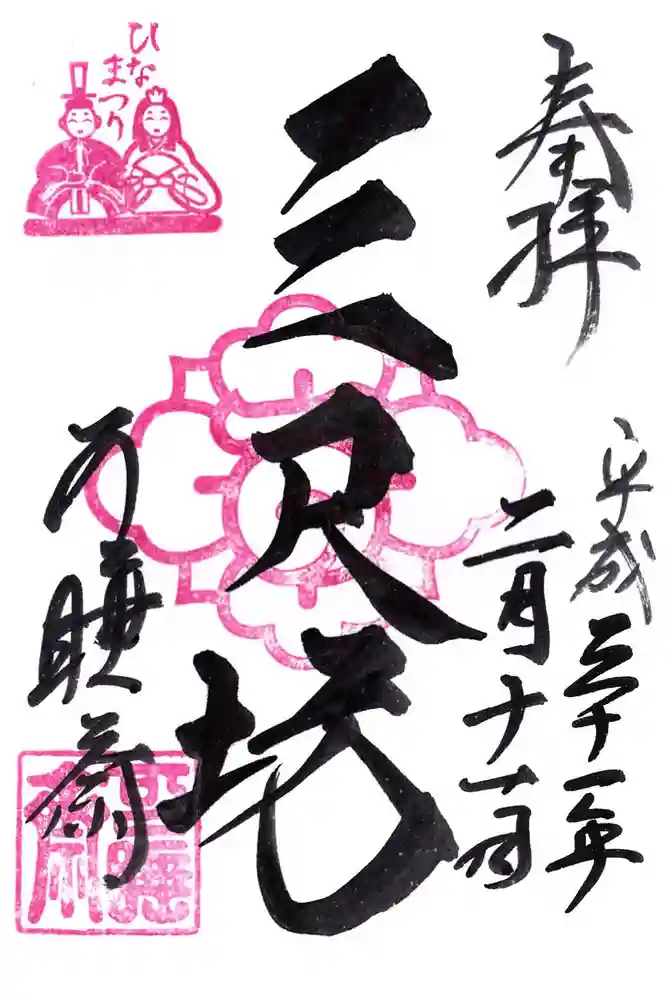 奉拝
平成三十一年
二月十一日
三尺坊
可睡斎
ひな
まつり